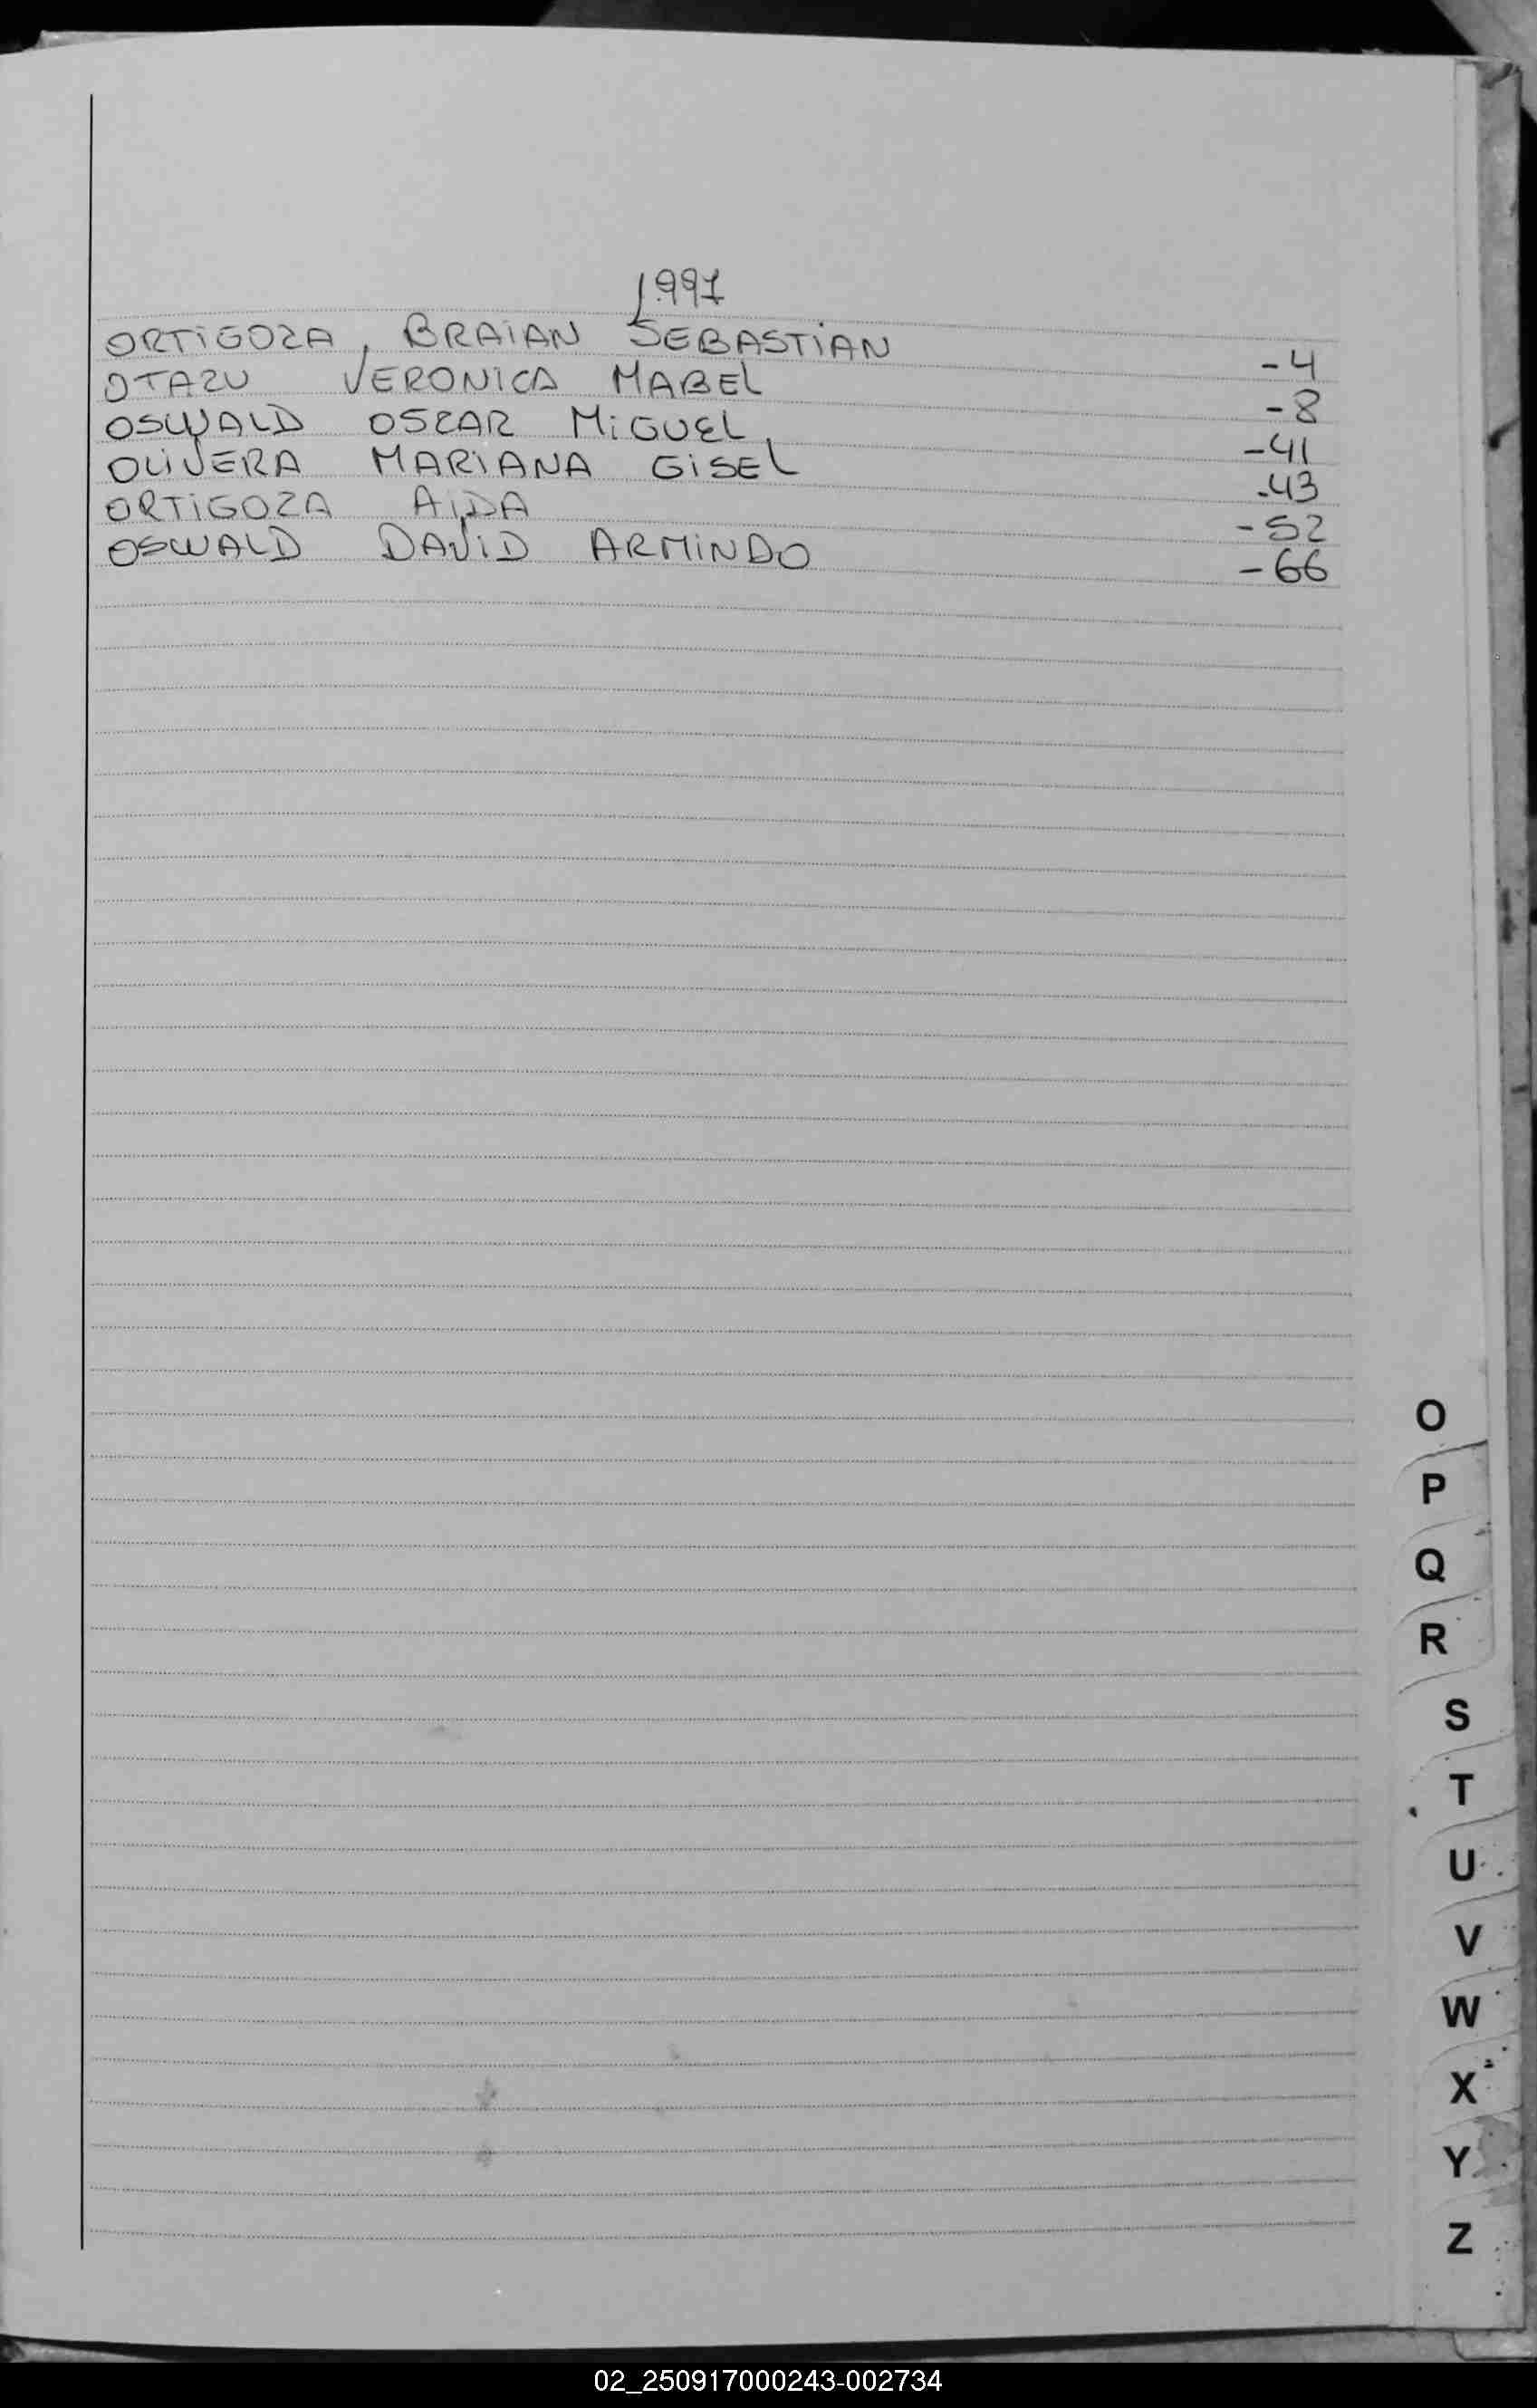 1997
ORTIGOZA, BRAIAN SEBASTIAN -4
OTAZU VERONICA MABEL -8
OSWALD OSCAR MIGUEL -41
OLIVERA MARIANA GISEL -43
ORTIGOZA AIDA -52
OSWALD DAVID ARMINDO -66
O
P
Q
R
S
T
U
V
W
X
Y
Z
02_250917000243-002734